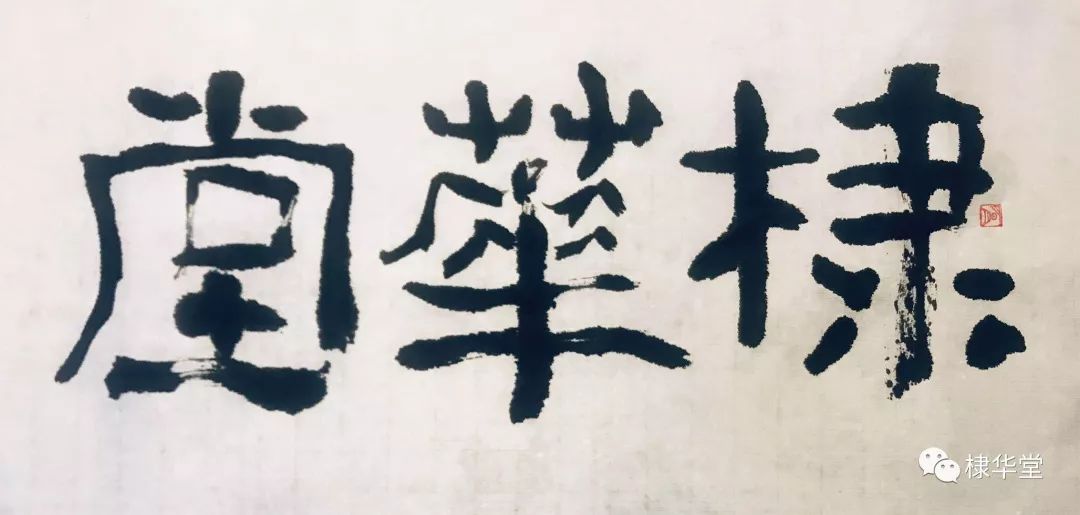 棣華堂
棣华堂